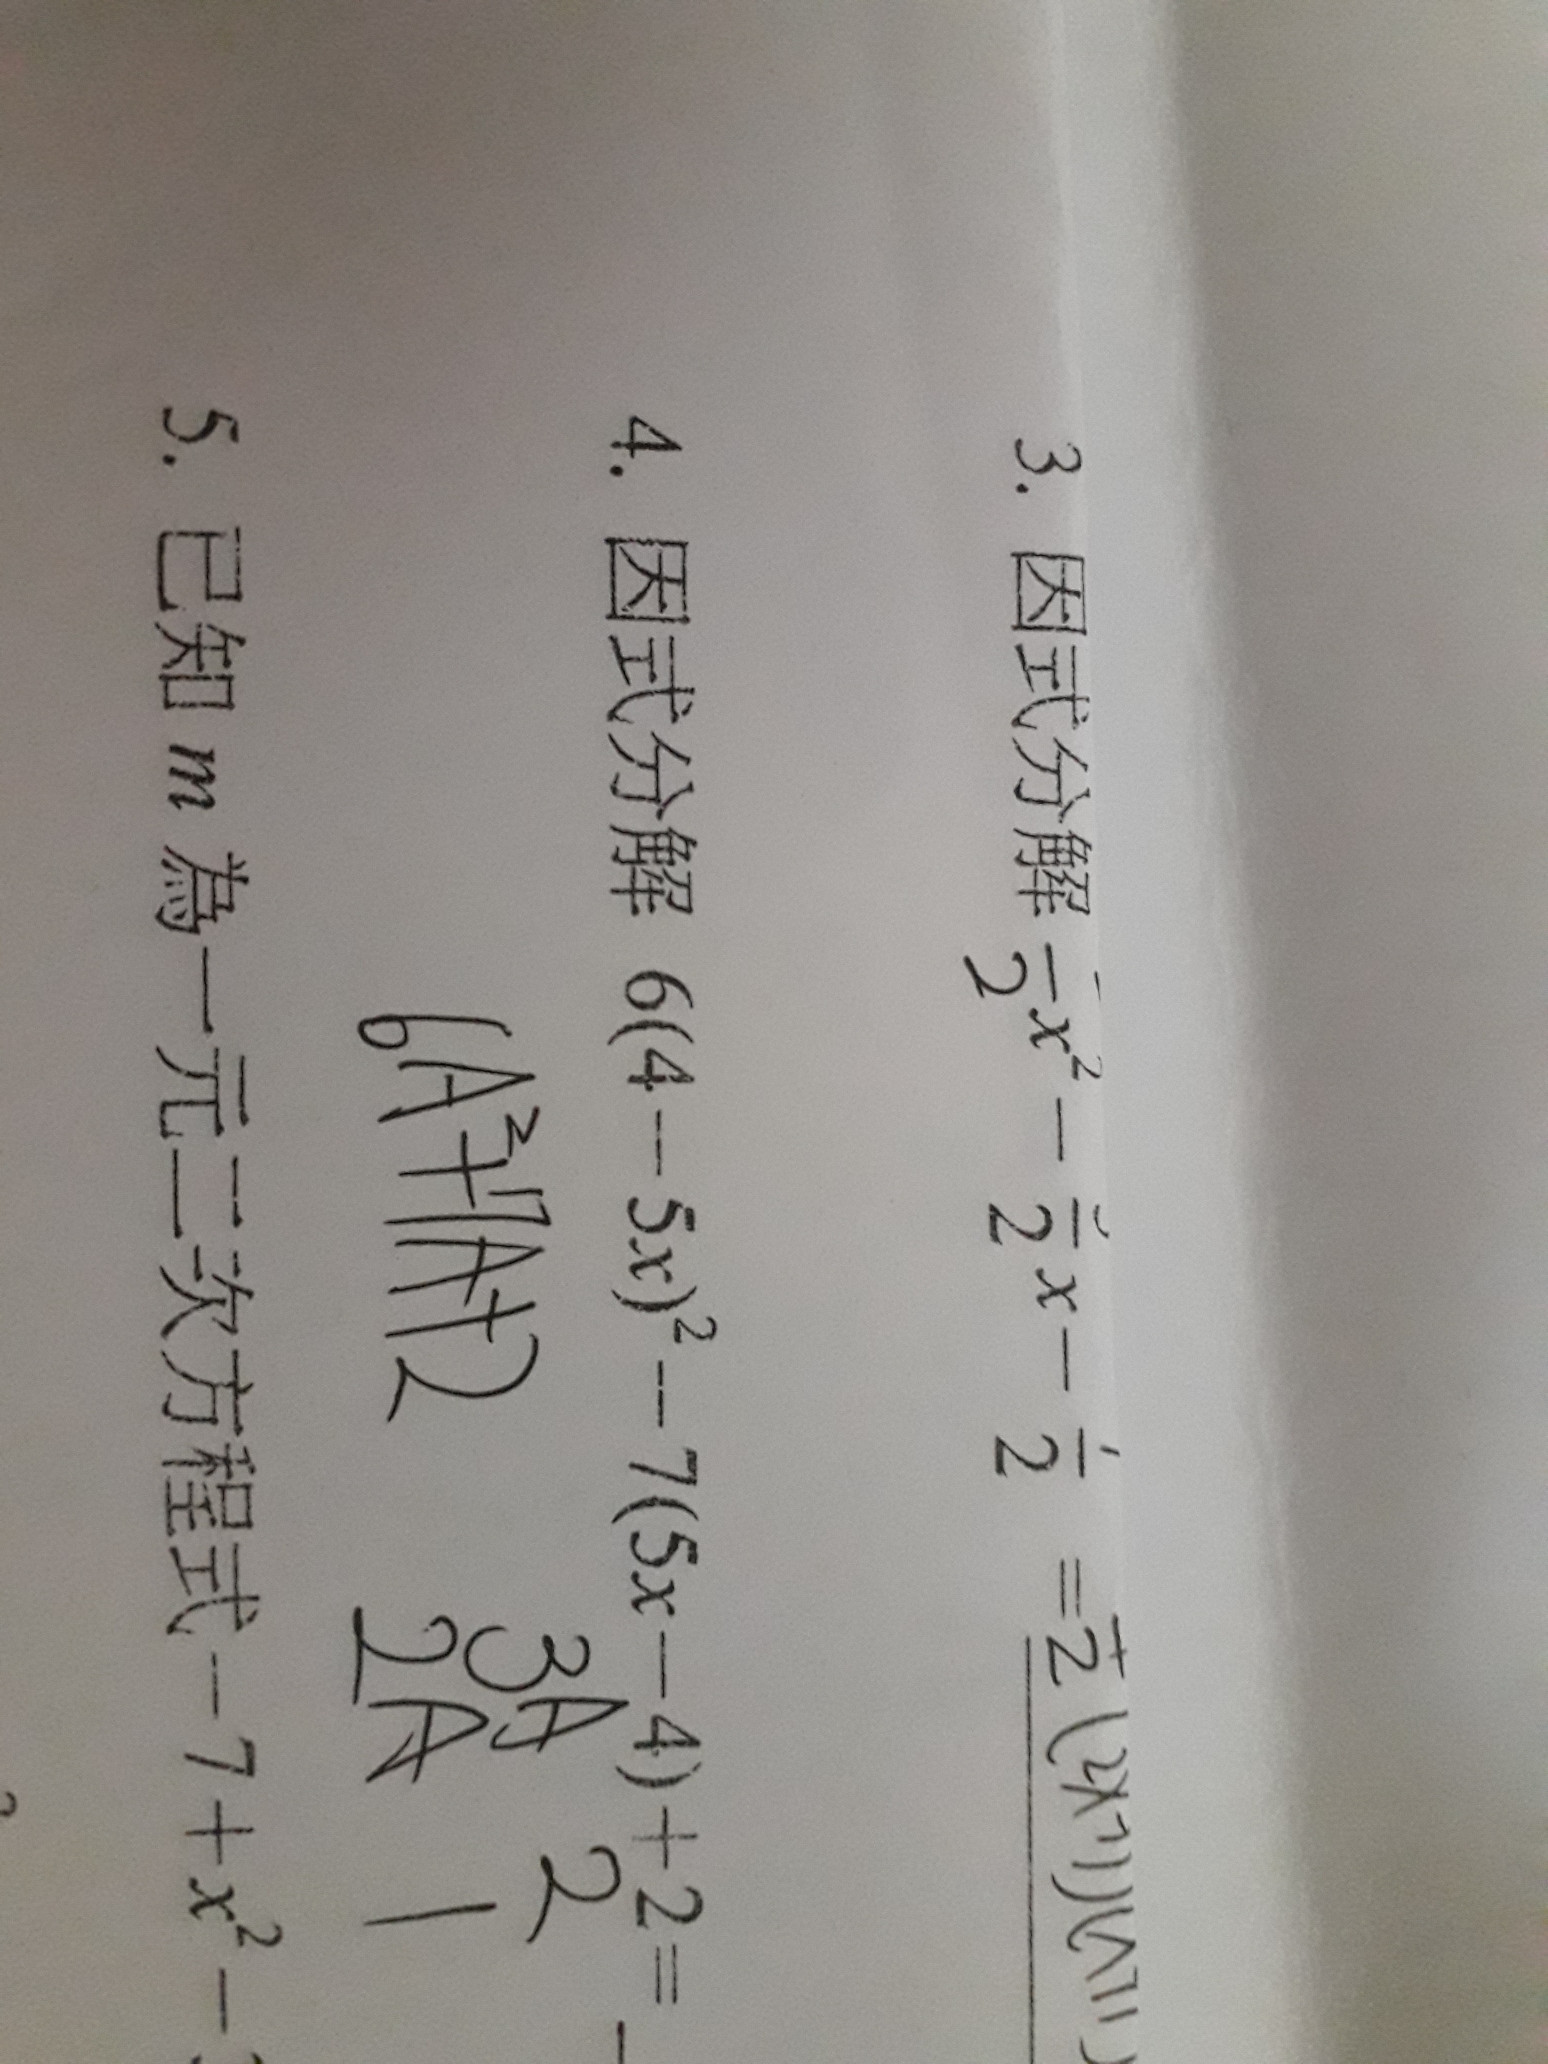 3. 因式分解 —/2 x² − —/2 x − —/2 = 1/2 (2x
4. 因式分解 6(4−5x)²−7(5x−4)+2=
6A²+7A+2
3A 2
2A 1
5. 已知 m 為一元二次方程式−7+x²−